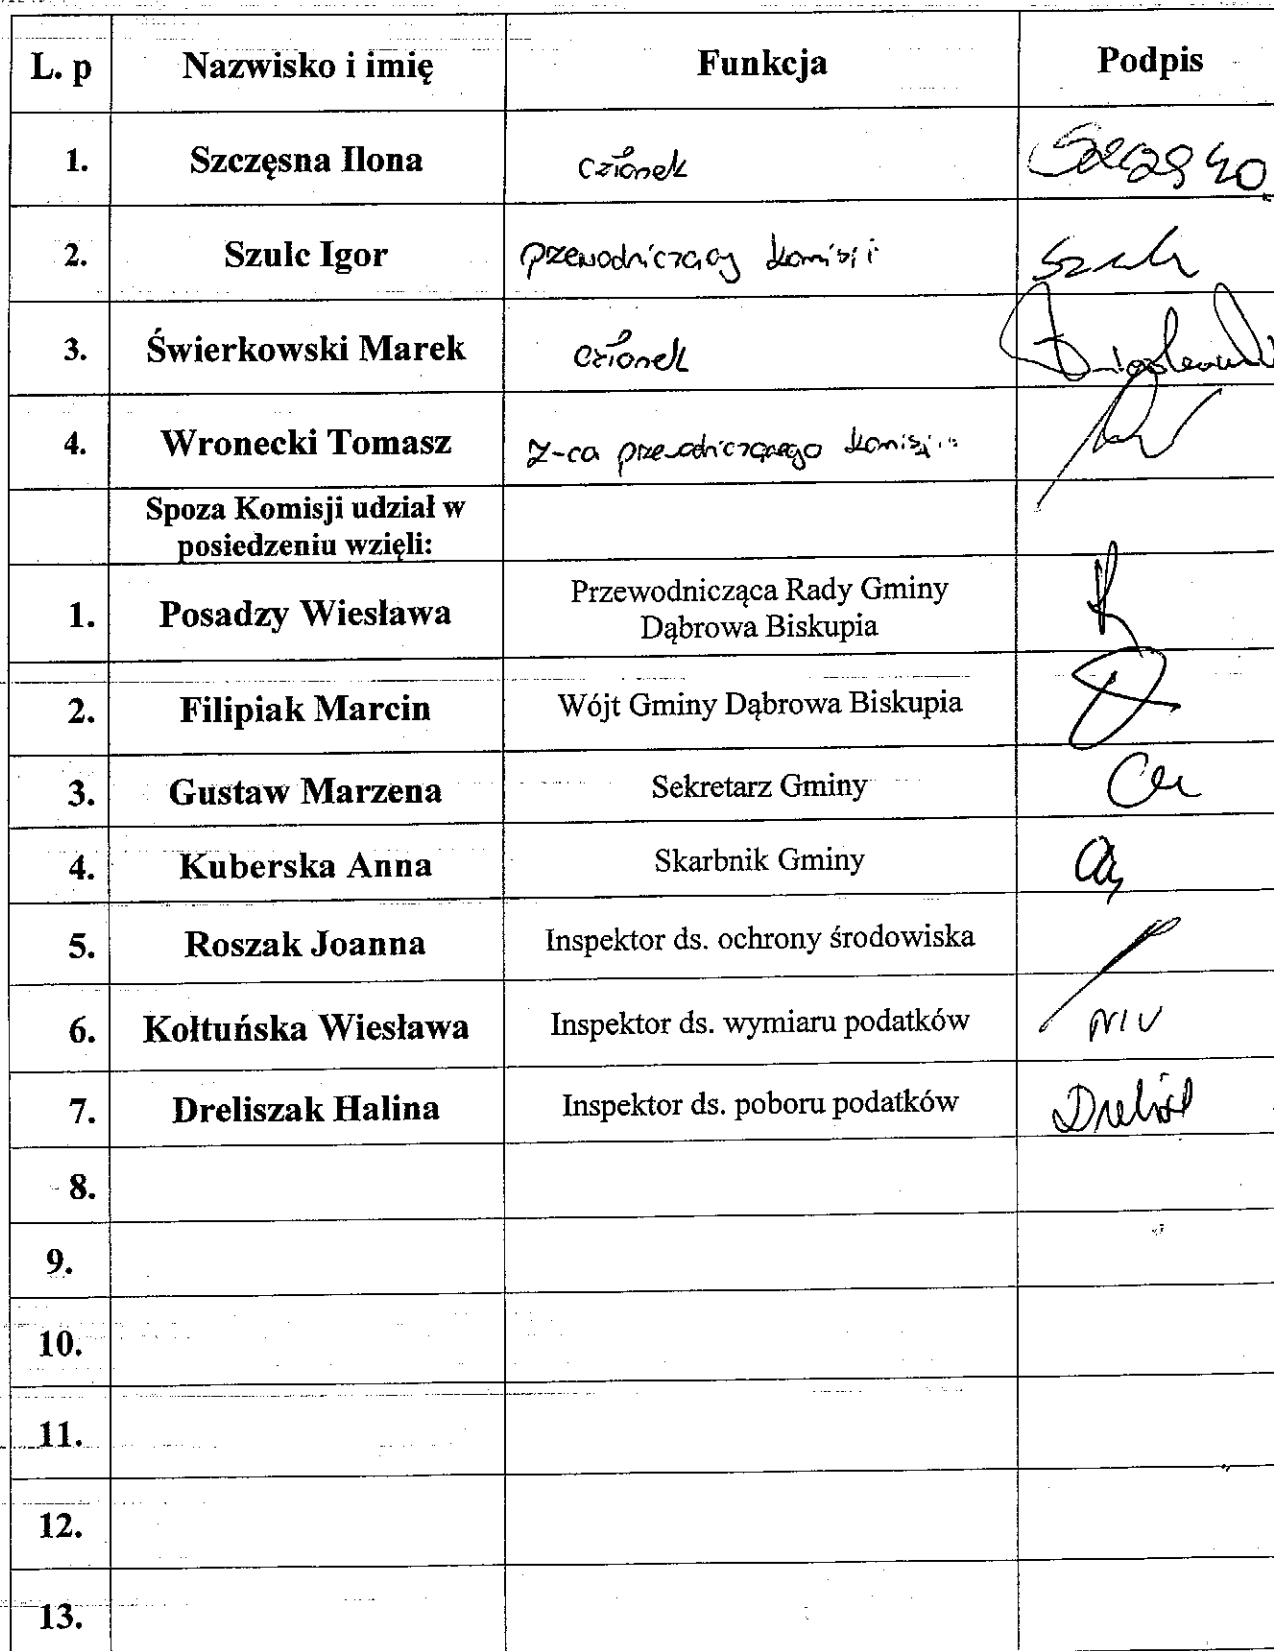 L. p Nazwisko i imię Funkcja Podpis
1. Szczęsna Ilona członek
2. Szulc Igor przewodniczący komisji Szulc
3. Świerkowski Marek członek
4. Wronecki Tomasz Z-ca przewodniczącego komisji
Spoza Komisji udział w
posiedzeniu wzięli:
1. Posadzy Wiesława Przewodnicząca Rady Gminy
Dąbrowa Biskupia
2. Filipiak Marcin Wójt Gminy Dąbrowa Biskupia
3. Gustaw Marzena Sekretarz Gminy
4. Kuberska Anna Skarbnik Gminy
5. Roszak Joanna Inspektor ds. ochrony środowiska
6. Kołtuńska Wiesława Inspektor ds. wymiaru podatków
7. Dreliszak Halina Inspektor ds. poboru podatków
8.
9.
10.
11.
12.
13.